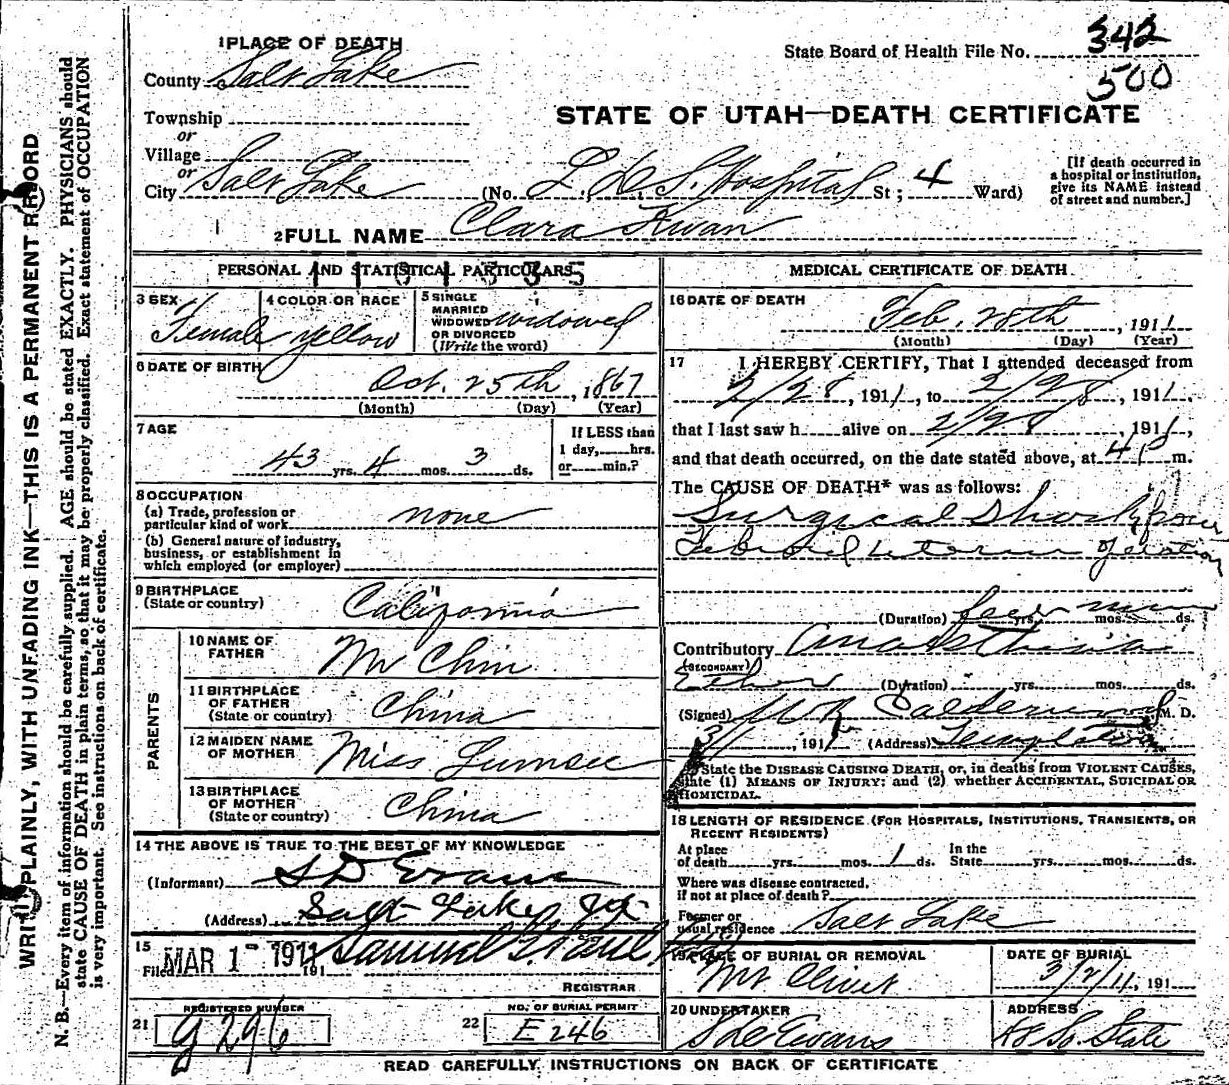 1 PLACE OF DEATH
County Salt Lake
Township
or
Village
or
City Salt Lake (No. L. D. S. Hospital St; 4 Ward)
State Board of Health File No. 342
500
STATE OF UTAH—DEATH CERTIFICATE
[If death occurred in
a hospital or institution,
give its NAME instead
of street and number.]
2 FULL NAME Clara Kwan
WRITE PLAINLY, WITH UNFADING INK—THIS IS A PERMANENT RECORD
N. B.—Every item of information should be carefully supplied. AGE should be stated EXACTLY. PHYSICIANS should
state CAUSE OF DEATH in plain terms, so that it may be properly classified. Exact statement of OCCUPATION
is very important. See instructions on back of certificate.
PERSONAL AND STATISTICAL PARTICULARS
3 SEX
Female
4 COLOR OR RACE
yellow
5 SINGLE
MARRIED
WIDOWED
OR DIVORCED
(Write the word)
widowed
6 DATE OF BIRTH
Oct. 25th, 1867
(Month) (Day) (Year)
7 AGE
43 yrs. 4 mos. 3 ds.
If LESS than
1 day, hrs.
or min.?
8 OCCUPATION
(a) Trade, profession or
particular kind of work none
(b) General nature of industry,
business, or establishment in
which employed (or employer)
9 BIRTHPLACE
(State or country) California
PARENTS
10 NAME OF
FATHER Mr Chin
11 BIRTHPLACE
OF FATHER
(State or country) China
12 MAIDEN NAME
OF MOTHER Miss Lumsee
13 BIRTHPLACE
OF MOTHER
(State or country) China
14 THE ABOVE IS TRUE TO THE BEST OF MY KNOWLEDGE
(Informant) S D Evans
(Address) Salt Lake, Ut
15
Filed MAR 1 - 1911 191 Samuel G Paul
REGISTRAR
21 REGISTERED NUMBER
G 296
22 NO. OF BURIAL PERMIT
E 246
MEDICAL CERTIFICATE OF DEATH
16 DATE OF DEATH
Feb. 28th, 1911
(Month) (Day) (Year)
17 I HEREBY CERTIFY, That I attended deceased from
2/28, 1911, to 2/28, 1911,
that I last saw h alive on 2/28, 1911,
and that death occurred, on the date stated above, at 4 P m.
The CAUSE OF DEATH* was as follows:
Surgical Shock from
(Duration) yrs. mos. ds.
Contributory Anaesthesia
(SECONDARY)
Ether (Duration) yrs. mos. ds.
(Signed) Calderwood M. D.
3/1, 191 (Address) Templeton
State the DISEASE CAUSING DEATH, or, in deaths from VIOLENT CAUSES,
state (1) MEANS OF INJURY; and (2) whether ACCIDENTAL, SUICIDAL OR
HOMICIDAL.
18 LENGTH OF RESIDENCE (FOR HOSPITALS, INSTITUTIONS, TRANSIENTS, OR
RECENT RESIDENTS)
At place In the
of death yrs. mos. 1 ds. State yrs. mos. ds.
Where was disease contracted,
if not at place of death?
Former or
usual residence Salt Lake
19 PLACE OF BURIAL OR REMOVAL
Mt Olivet
DATE OF BURIAL
3/2/11, 191
20 UNDERTAKER
S D Evans
ADDRESS
48 So. State
READ CAREFULLY INSTRUCTIONS ON BACK OF CERTIFICATE